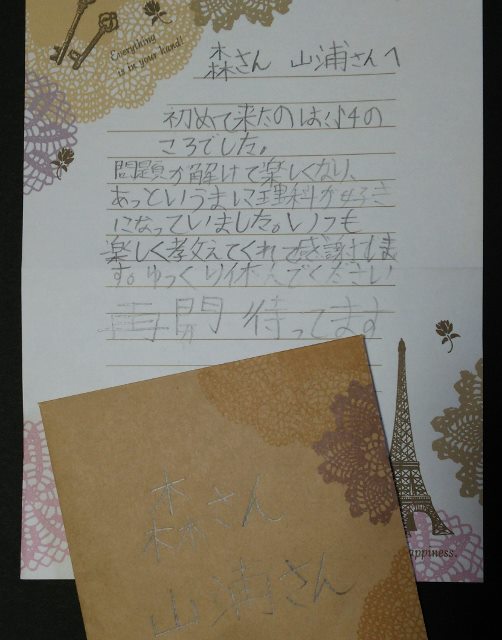 Everything
is in your hand!
森さん 山浦さんへ
初めて来たのは小4の
ころでした。
問題が解けて楽しくなり、
あっというまに理科が好き
になっていました。いつも
楽しく教えてくれて感謝しま
す。ゆっくり休んでください
再開待ってます
森さん
山浦さん
appiness.